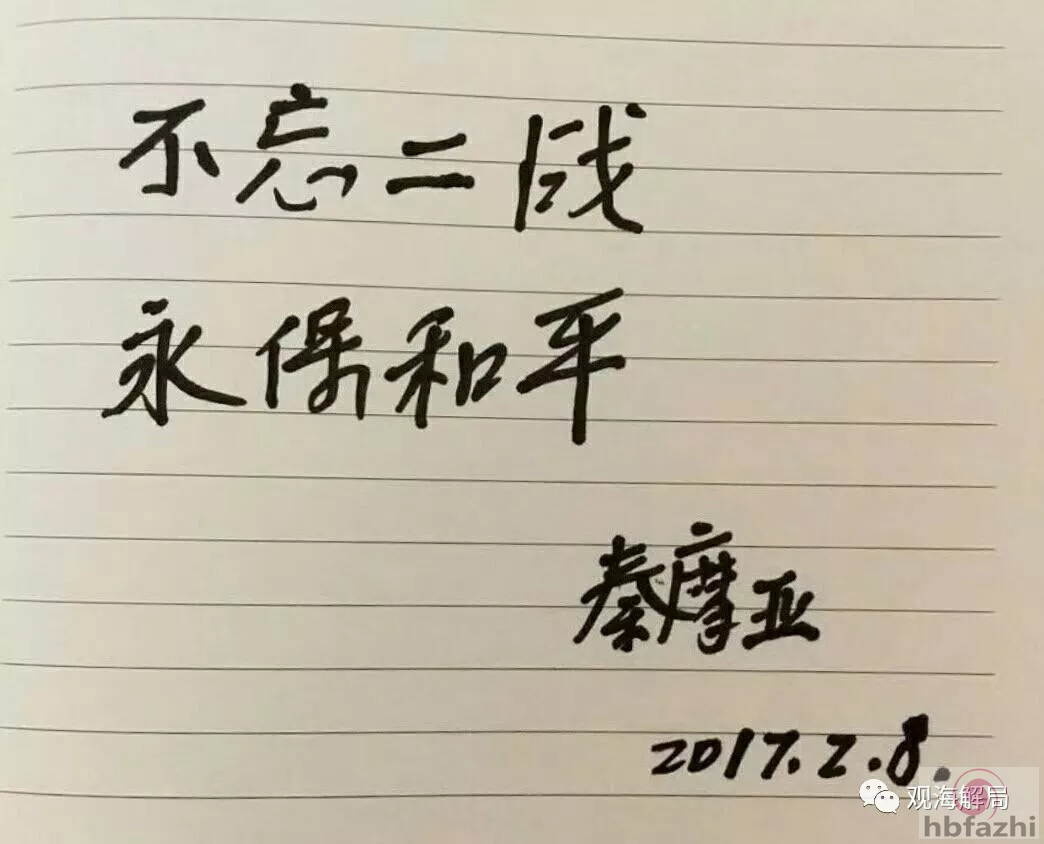 不忘二战
永保和平
秦摩亚
2017.2.8.
观海解局
hbfazhi